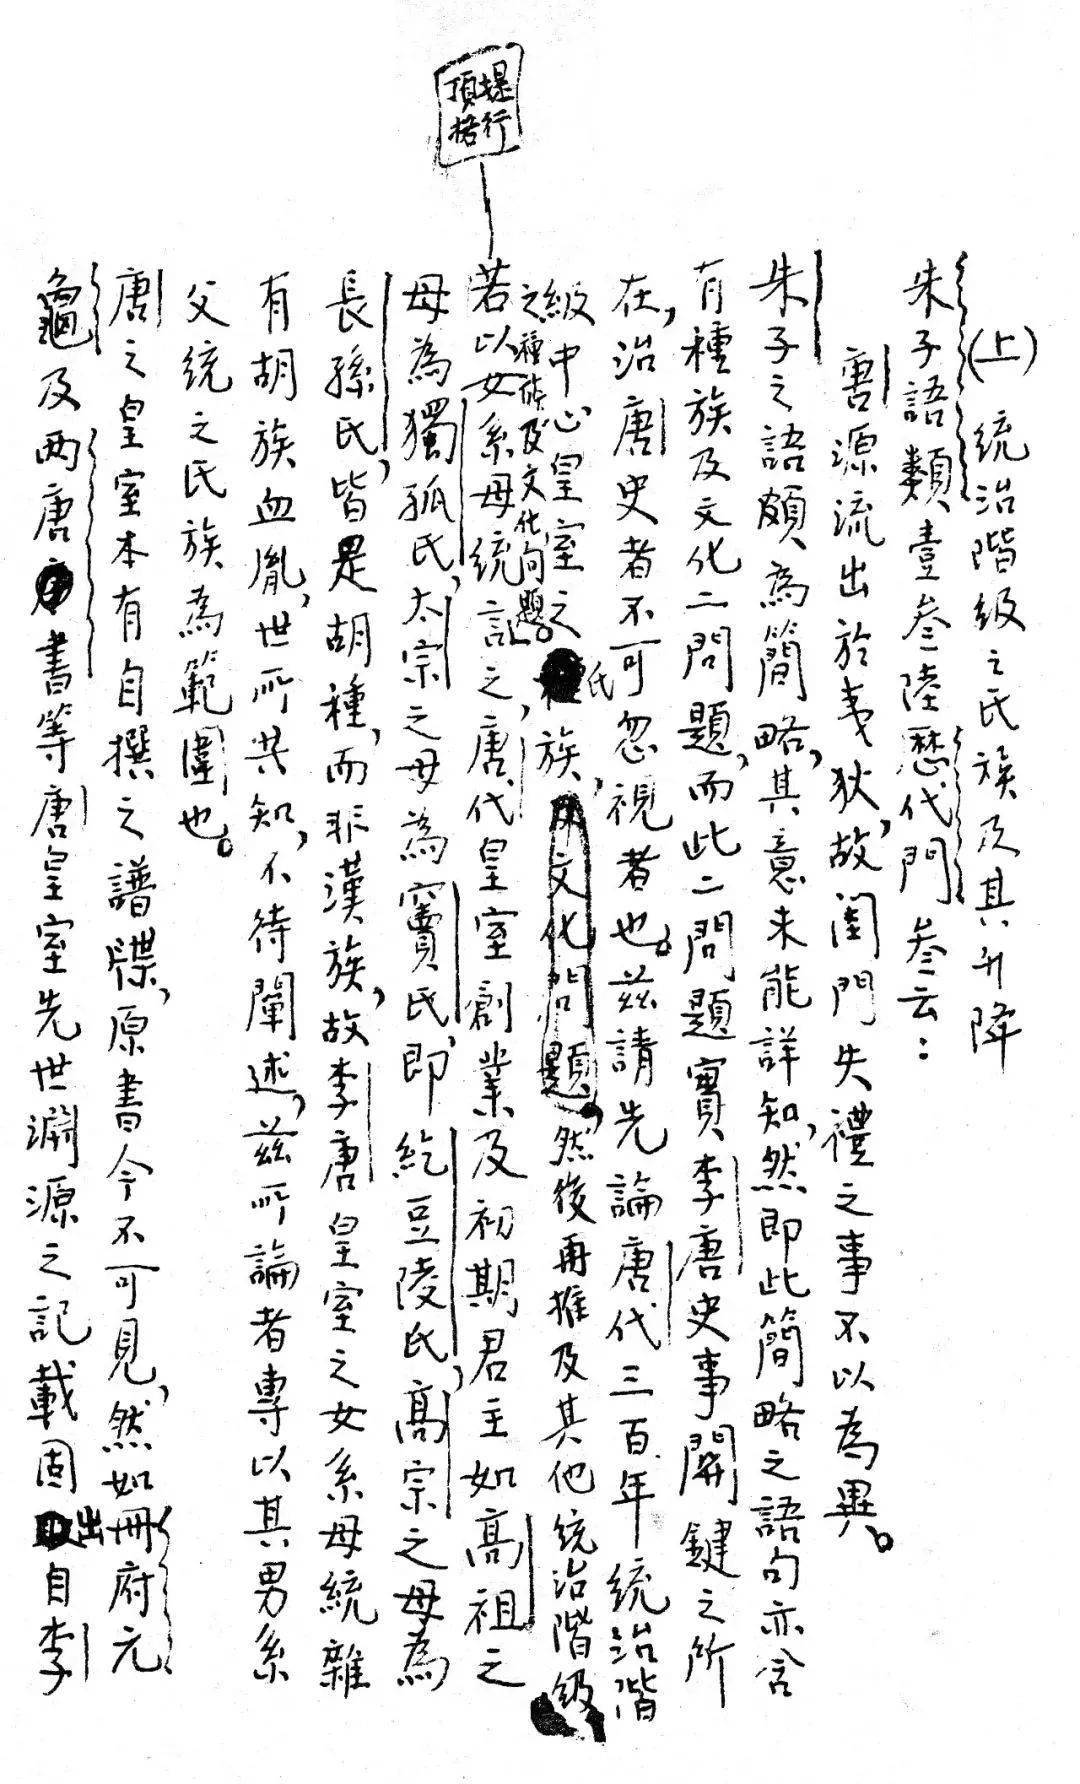 提行
頂格
(上) 統治階級之氏族及其升降
朱子語類壹叁陸歷代門叁云：
唐源流出於夷狄，故閨門失禮之事不以為異。
朱子之語頗為簡略，其意未能詳知，然即此簡略之語句亦含
有種族及文化二問題，而此二問題實李唐史事關鍵之所
在，治唐史者不可忽視者也。茲請先論唐代三百年統治階
級中心皇室之氏族，然後再推及其他統治階級
之種族及文化問題。
若以女系母統言之，唐代皇室創業及初期君主如高祖之
母為獨孤氏，太宗之母為竇氏，即紇豆陵氏，高宗之母為
長孫氏，皆是胡種，而非漢族，故李唐皇室之女系母統雜
有胡族血胤，世所共知，不待闡述，茲所論者專以其男系
父統之氏族為範圍也。
唐之皇室本有自撰之譜牒，原書今不可見，然如冊府元
龜及兩唐書等唐皇室先世淵源之記載固出自李